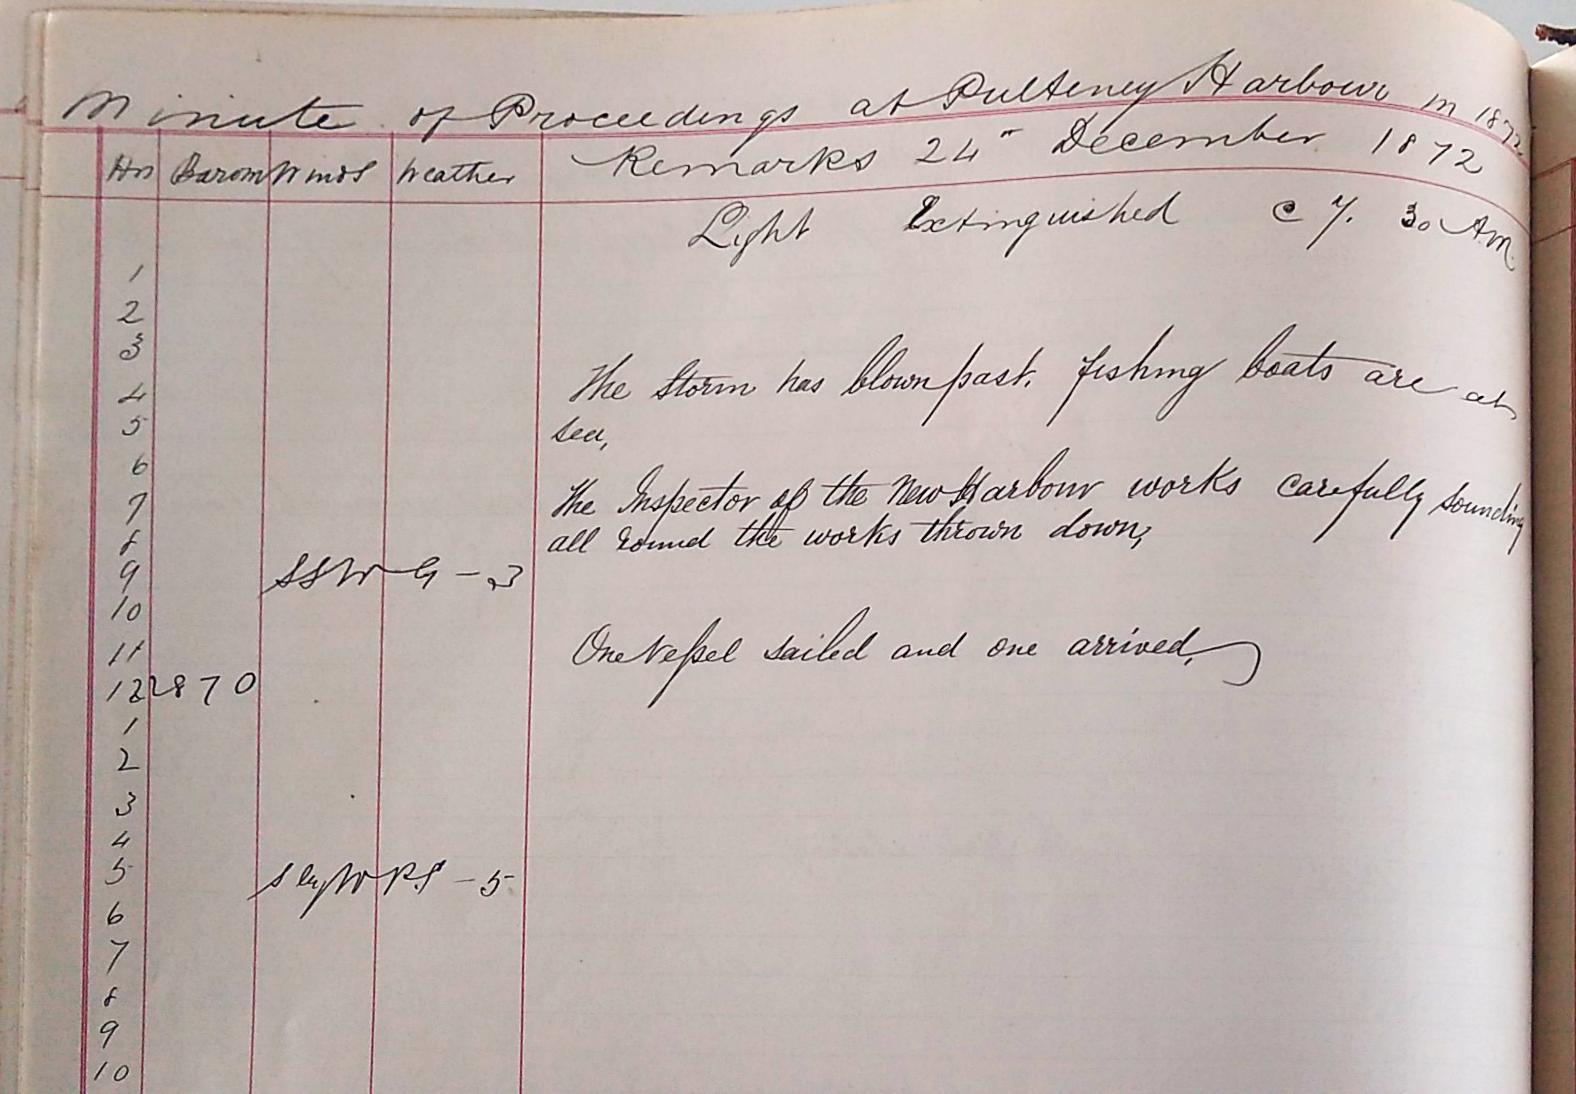 Minute of Proceedings at Pulteney Harbour in 1872
Hrs Barom Winds Weather Remarks 24" December 1872
Light Extinguished @ 7. 30 Am.
1
2
3
The Storm has blown past. fishing boats are at
4
5 sea,
6
The Inspector of the New Harbour works carefully sounding
7
all round the works thrown down,
8
9 SSW G - 3
10
11 One Vessel sailed and one arrived,
12 2870
1
2
3
4
5 S by W R.S - 5
6
7
8
9
10